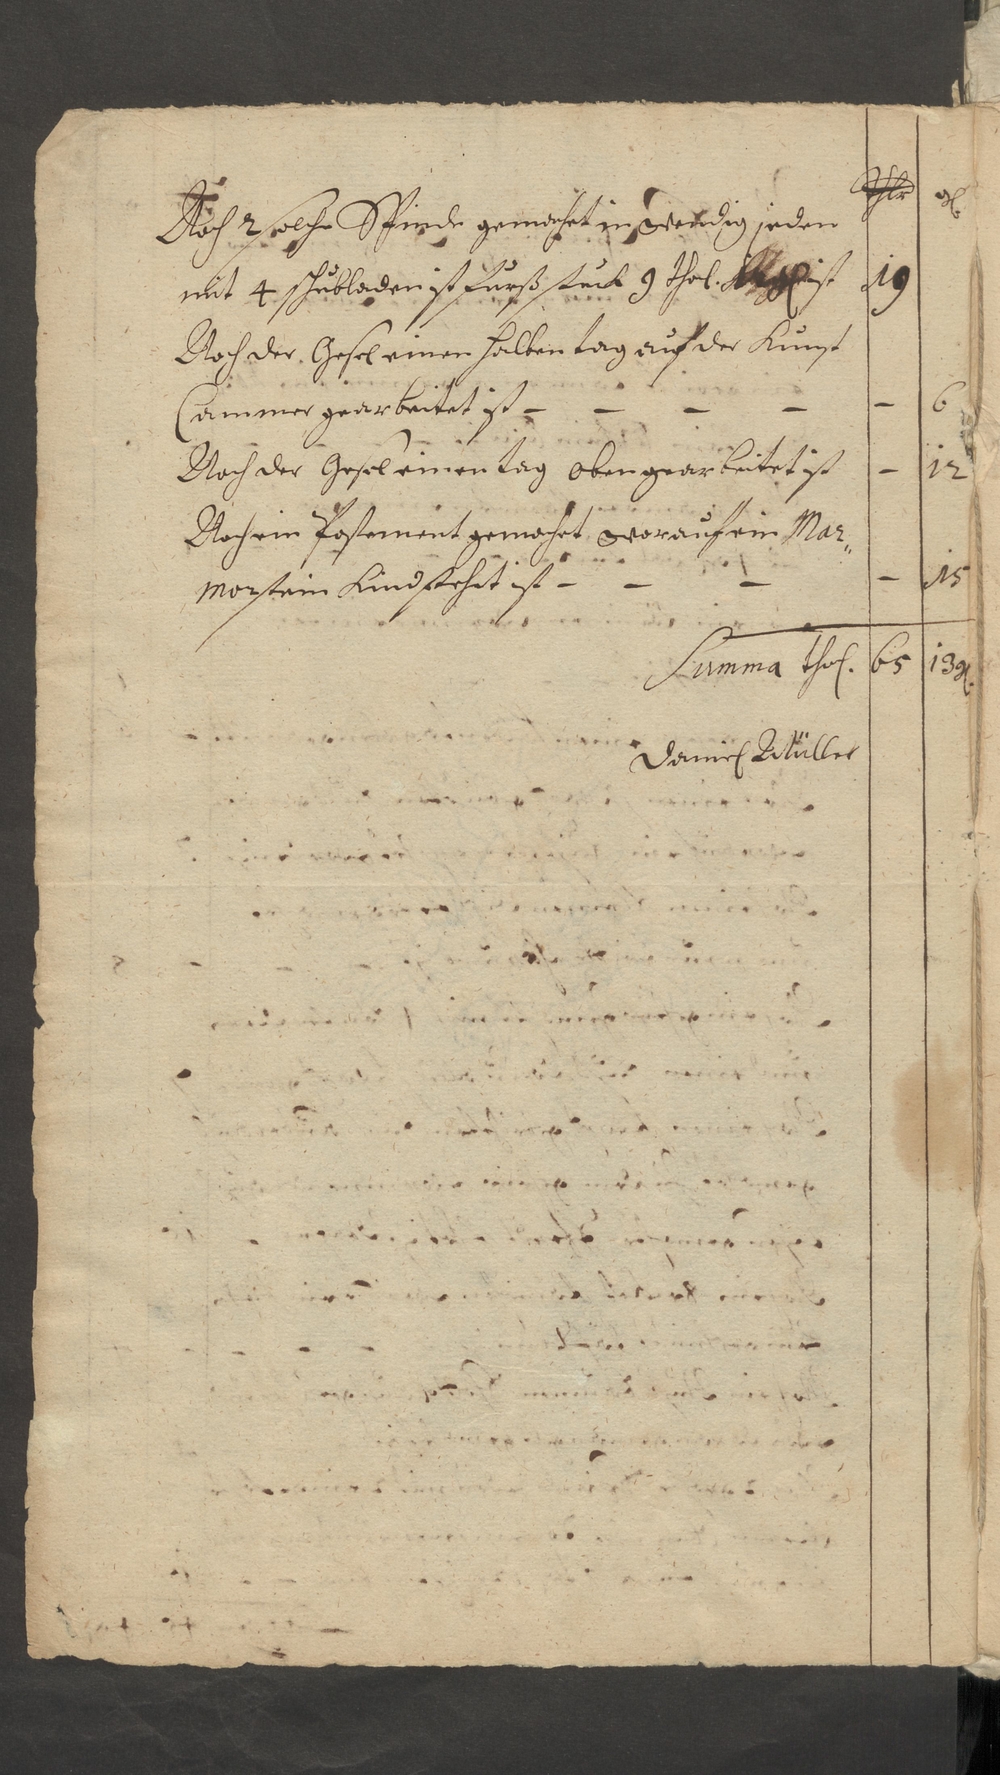 Thlr gl
Noch 2 solche Spinde gemachet inwendig jeden
mit 4 schubladen ist furß stuck 9 thal. ist 19
Noch der Gesel einen halben tag auf der Kunst
Cammer gearbeitet ist – – – – – 6
Noch der Gesel einen tag oben gearbeitet ist – 12
Noch ein Postement gemachet worauf ein Mar„
morstein Kind stehet ist – – – – 15
Summa thal. 65 13 gl.
Daniel Müller